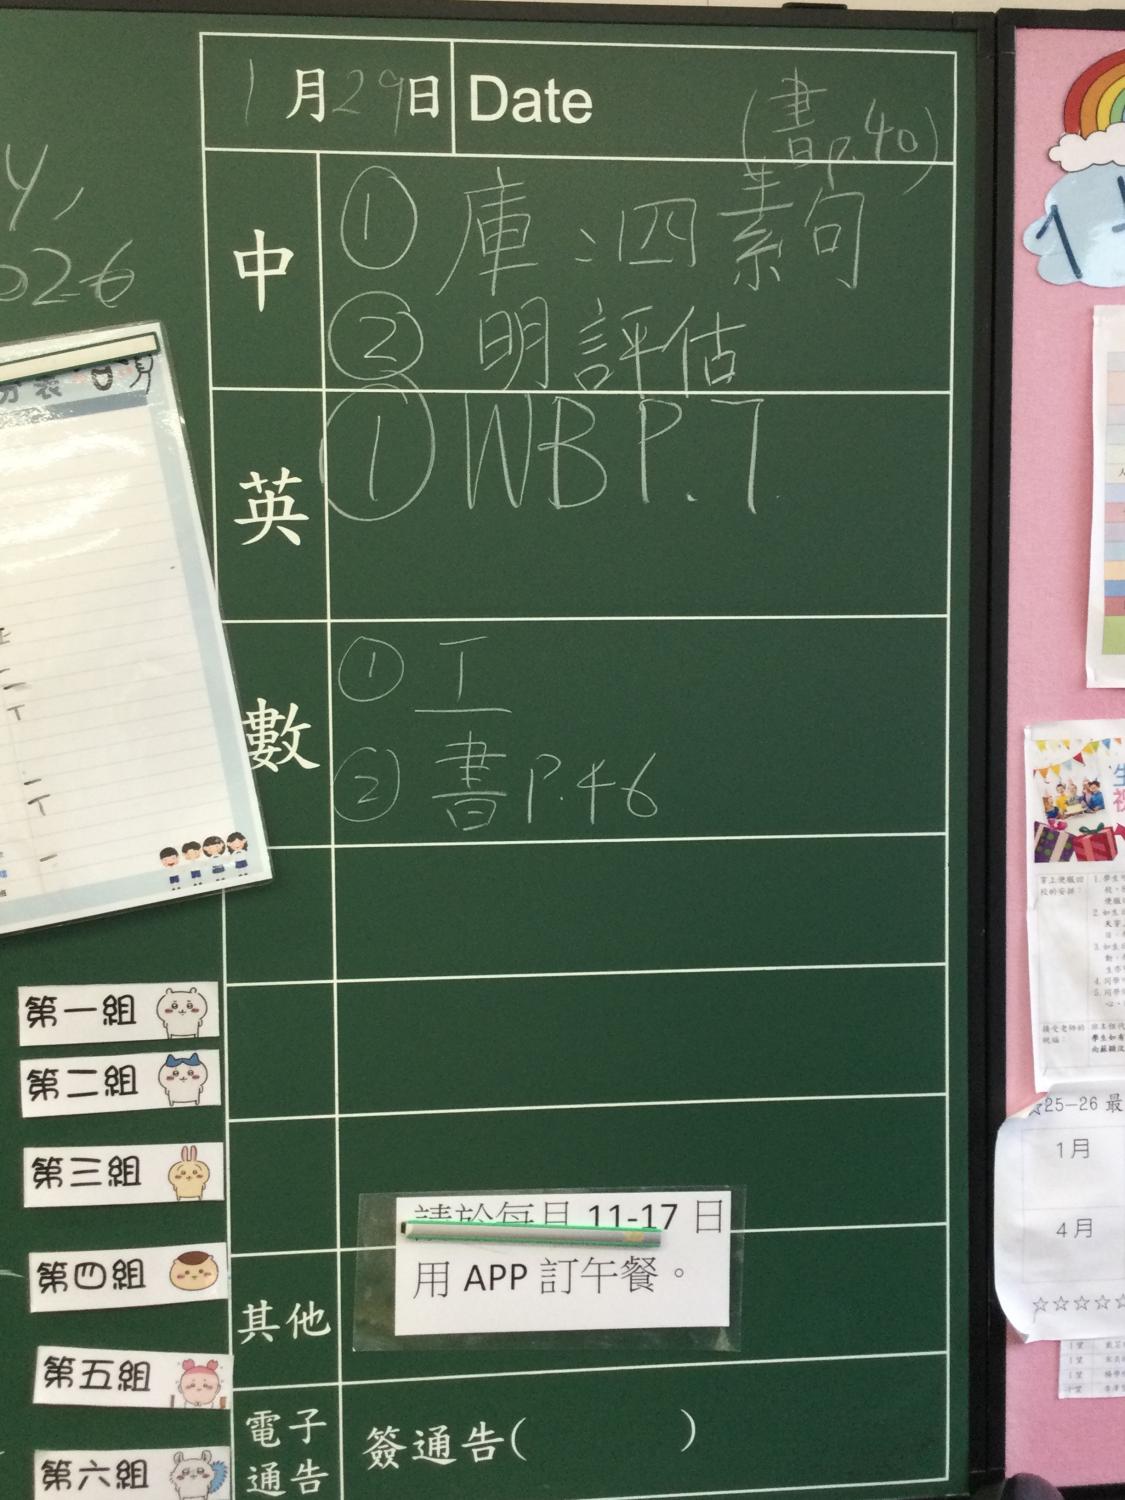 1月29日 Date
(書P.40)
中
① 庫：四素句
② 明評估
英
① WB P.7
數
① 工
② 書P.46
第一組
第二組
第三組
第四組
第五組
第六組
請於每月 11-17 日
用 APP 訂午餐。
其他
電子
通告
簽通告( )
☆25-26 最
1月
4月
☆☆☆☆☆